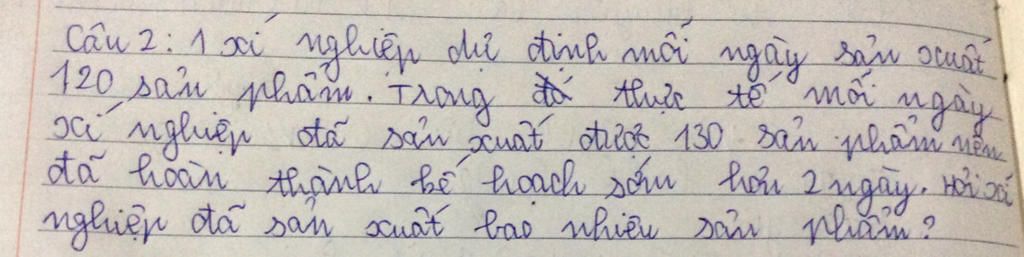 Câu 2: 1 xí nghiệp dự định mỗi ngày sản xuất
120 sản phẩm. Trong thực tế mỗi ngày
xí nghiệp đã sản xuất được 130 sản phẩm nên
đã hoàn thành kế hoạch sớm hơn 2 ngày. Hỏi xí
nghiệp đã sản xuất bao nhiêu sản phẩm?